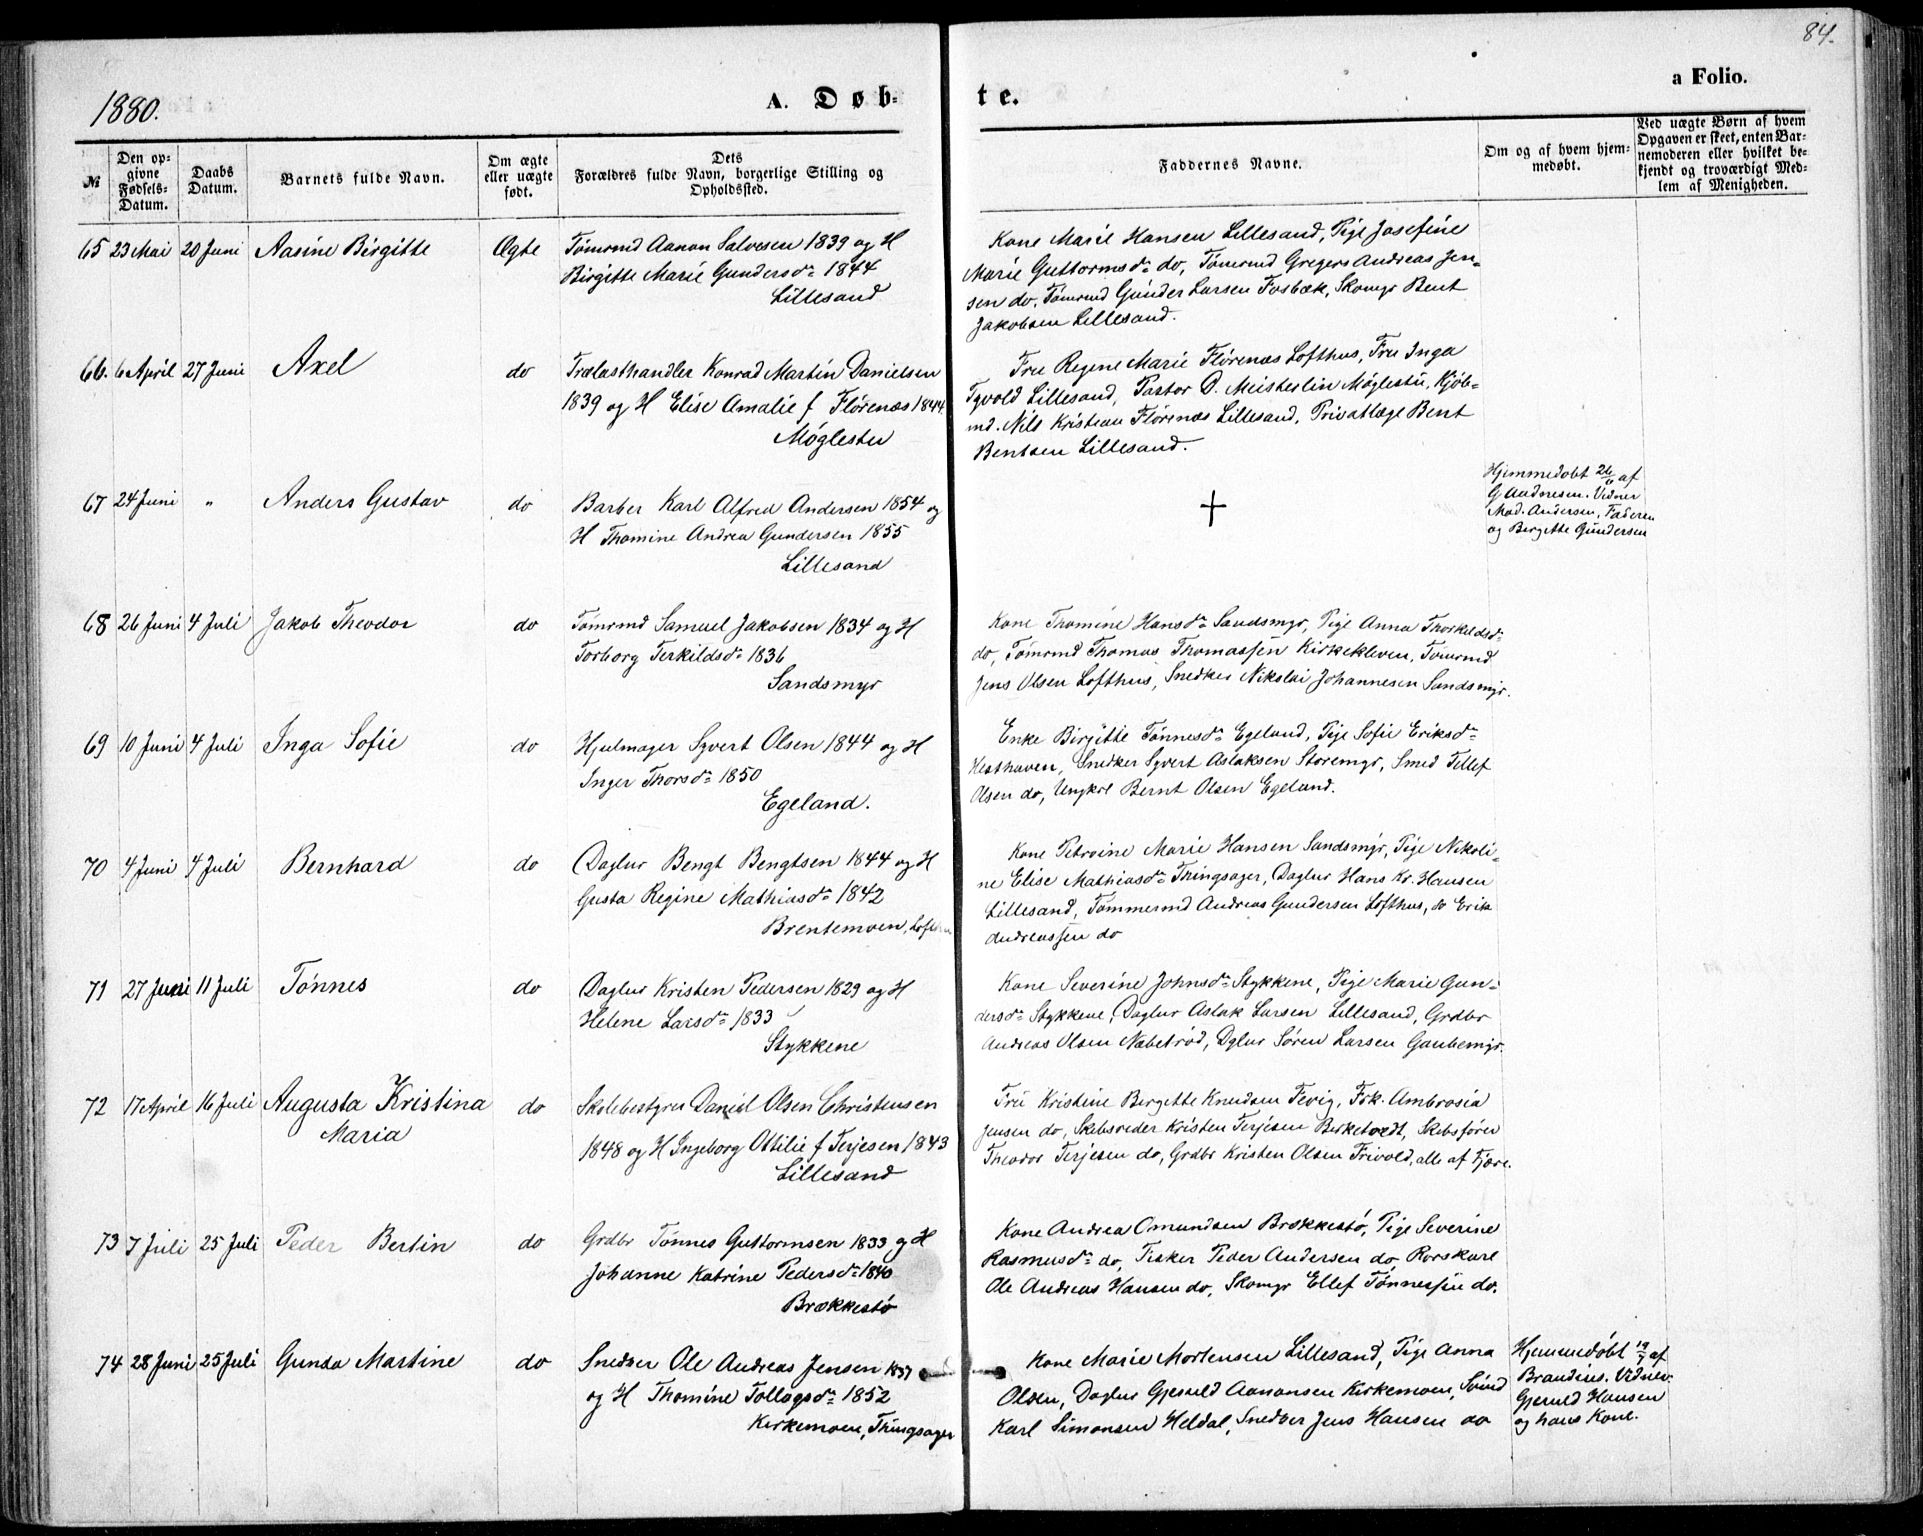 84.
a Folio.
1880.
A. Døb-
te.
№
Den op-
givne
Fødsels-
Datum.
Daabs
Datum.
Barnets fulde Navn.
Om ægte
eller uægte
født.
Dets
Forældres fulde Navn, borgerlige Stilling og
Opholdssted.
Faddernes Navne.
Om og af hvem hjem-
medøbt.
Ved uægte Børn af hvem
Opgaven er skeet, enten Bar-
nemoderen eller hvilket be-
kjendt og troværdigt Med-
lem af Menigheden.
65 23 Mai 20 Juni Aasine Birgitte Ægte Tømrmd Aanon Salvesen 1839 og H
Birgitte Marie Gundersdr 1844
Lillesand
Kone Marie Hansen Lillesand, Pige Josefine
Marie Guttormsdr do, Tømrmd Gregers Andreas Jen-
sen do, Tømrmd Gunder Larsen Fosbæk, Skomgr Bent
Jakobsen Lillesand.
66. 6 April 27 Juni Axel do Trælasthandler Konrad Martin Danielsen
1839 og H Elise Amalie f Flörenæs 1844
Møglestu
Fru Regine Marie Flörenæs Lofthus, Fru Inga
Tgvold Lillesand, Pastor D. Meisterlin Møglestu, Kjöb-
md. Nils Kristian Flörenæs Lillesand, Privatlæge Bent
Bentsen Lillesand.
67 24 Juni " Anders Gustav do Barber Karl Alfred Andersen 1854 og
H Thomine Andrea Gundersen 1855
Lillesand
+
Hjemmedøbt 26/6 af
G Andresen. Vidner
Mad. Andersen, Faderen
og Birgitte Gundersen
68 26 Juni 4 Juli Jakob Theodor do Tømrmd Samuel Jakobsen 1834 og H
Torborg Terkildsdr 1836
Sandsmyr
Kone Thomine Hansdr Sandsmyr, Pige Anna Thorkildsdr
do, Tømrmd Thomas Thomassen Kirkekleven, Tømrmd
Jens Olsen Lofthus, Snedker Nikolai Johannesen Sandsmyr.
69 10 Juni 4 Juli Inga Sofie do Hjulmager Syvert Olsen 1844 og H
Inger Thorsdr 1850
Egeland.
Enke Birgitte Tønnesdr Egeland, Pige Sofie Eriksdr
Hesthaven, Snedker Syvert Aslaksen Storemyr, Smed Tellef
Olsen do, Ungkrl Bernt Olsen Egeland.
70 4 Juni 4 Juli Bernhard do Daglnr Bengt Bengtsen 1844 og H
Gusta Regine Mathiasdr 1842
Brentemoen,
Kone Petroine Marie Hansen Sandsmyr, Pige Nikoli-
ne Elise Mathiasdr Thingsager, Daglnr Hans Kr. Hansen
Lillesand, Tømmermd Andreas Gundersen Lofthus, do Erik
Andreassen do
71 27 Juni 11 Juli Tönnes do Daglnr Kristen Pedersen 1829 og H
Helene Larsdr 1833
Stykkene
Kone Severine Johnsdr Stykkene, Pige Marie Gun-
dersdr Stykkene, Daglnr Aslak Larsen Lillesand, Grdbr
Andreas Olsen Næbetröd, Dglnr Sören Larsen Gaubemyr.
72 17 April 16 Juli Augusta Kristina do Skolebestyrer Daniel Olsen Christensen
Maria
1848 og H Ingeborg Ottilie f Terjesen 1843
Lillesand
Fru Kristine Birgitte Knudsen Fevig, Frk. Ambrosia
Jensen do, Skibsreder Kristen Terjesen Birketvedt, Skibsfører
Theodor Terjesen do, Grdbr Kristen Olsen Frivold, alle af Fjære.
73 7 Juli 25 Juli Peder Bertin do Grdbr Tönnes Guttormsen 1833 og H
Johanne Katrine Pedersdr 1840
Brækkestö
Kone Andrea Omundsen Brækkestö, Pige Severine
Rasmusdr do, Fisker Peder Andersen do, Rorskarl
Ole Andreas Hansen do, Skomgr Ellef Tönnessen do.
74 28 Juni 25 Juli Gunda Martine do Snedker Ole Andreas Jensen 1837
og H Thomine Tollagsdr 1852
Kirkemoen, Thingsager
Kone Marie Mortensen Lillesand, Pige Anna
Olsen, Daglnr Gjeruld Aanonsen Kirkemoen,
Karl Simonsen Heldal, Snedker Jens Hansen do
Hjemmedøbt 19/7 af
Brandius. Vidner
Gjeruld Hansen
og hans Kone.